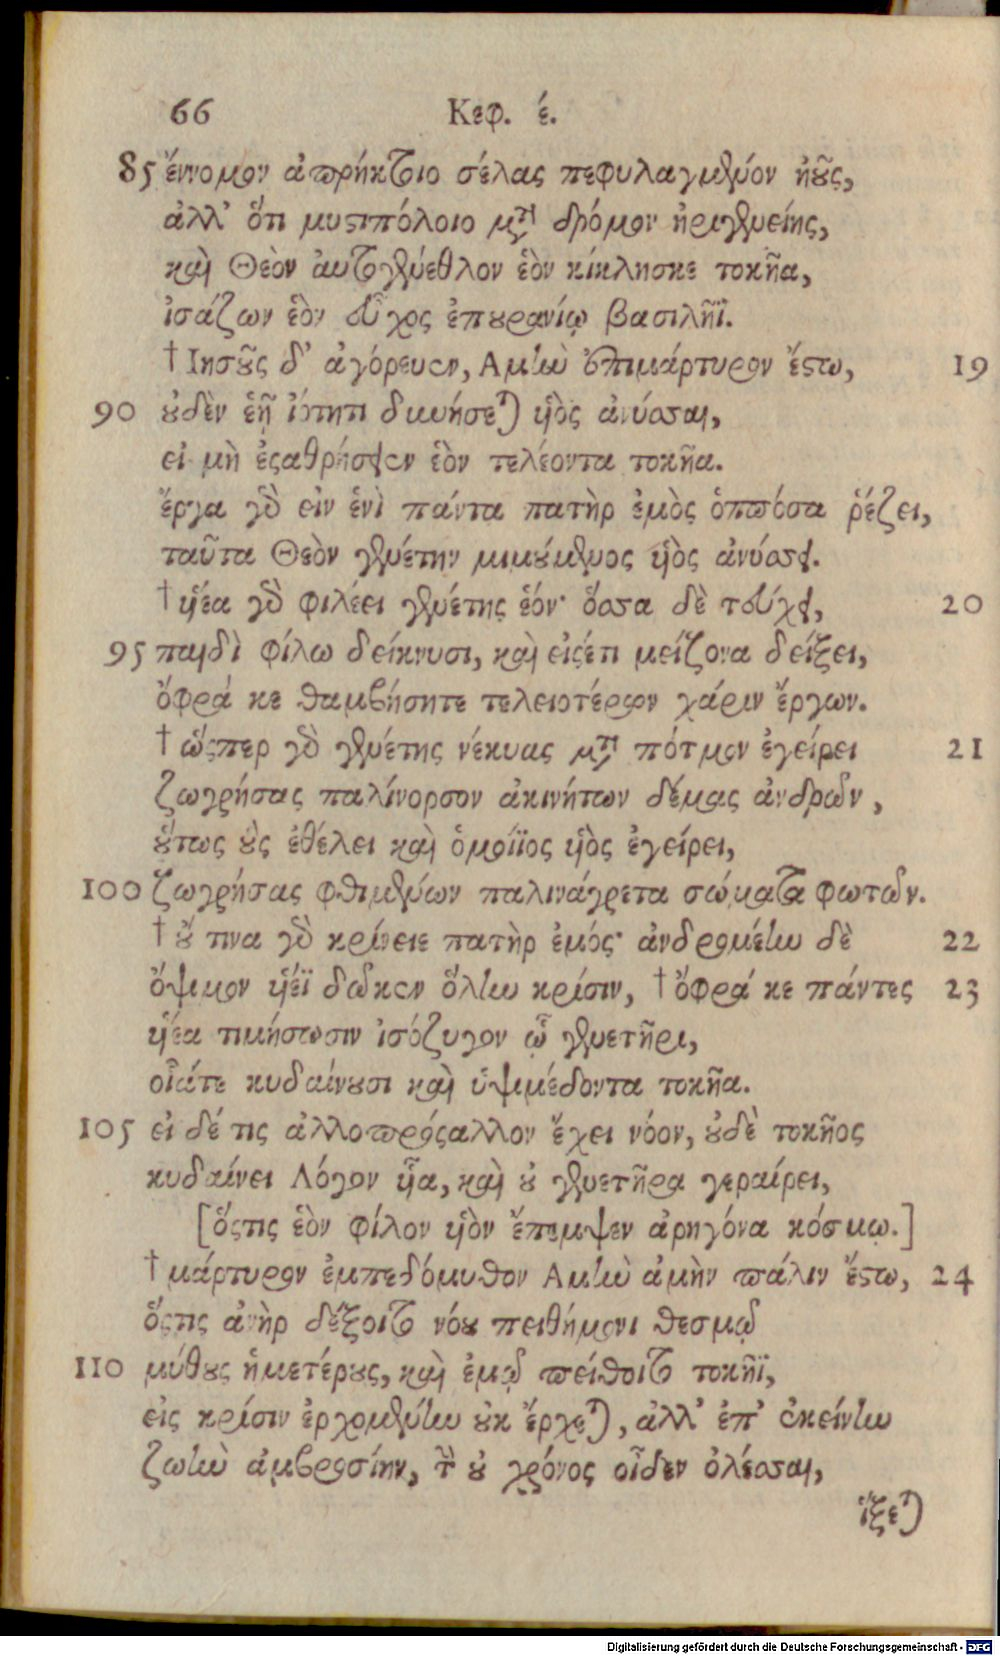 66 Κεφ. έ.
85 ἔννομον ἀπρήκτοιο σέλας πεφυλαγμένον ἠοῦς,
ἀλλ' ὅτι μυστιπόλοιο μετὰ δρόμον ἠριγενείης,
καὶ Θεὸν αὐτογένεθλον ἑὸν κίκλησκε τοκῆα,
ἰσάζων ἑὸν εὖχος ἐπουρανίῳ βασιλῆϊ.
† Ἰησοῦς δ' ἀγόρευεν, Ἀμὴν ἐπιμάρτυρον ἔστω, 19
90 οὐδὲν ἑῇ ἰότητι δυνήσεται υἱὸς ἀνύσσαι,
εἰ μὴ ἐσαθρήσειεν ἑὸν τελέοντα τοκῆα.
ἔργα γὸ εἰν ἑνὶ πάντα πατὴρ ἐμὸς ὁππόσα ῥέζει,
ταῦτα Θεὸν γενέτην μιμούμενος υἱὸς ἀνύσσει.
† υἱέα γὸ φιλέει γενέτης ἑόν· ὅσσα δὲ τεύχει, 20
95 παιδὶ φίλω δείκνυσι, καὶ εἰσέτι μείζονα δείξει,
ὄφρά κε θαμβήσητε τελειοτέρων χάριν ἔργων.
† ὥσπερ γὸ γενέτης νέκυας μετὰ πότμον ἐγείρει 21
ζωγρήσας παλίνορσον ἀκινήτων δέμας ἀνδρῶν,
οὕτως οὓς ἐθέλει καὶ ὁμοίϊος υἱὸς ἐγείρει,
100 ζωγρήσας φθιμένων παλινάγρετα σώματα φωτῶν.
† οὔ τινα γὸ κρίνειε πατὴρ ἐμός· ἀνδρομέην δὲ 22
ὄψιμον υἱέϊ δῶκεν ὅλην κρίσιν, † ὄφρά κε πάντες 23
υἱέα τιμήσωσιν ἰσόζυγον ᾧ γενετῆρι,
οἷάτε κυδαίνουσι καὶ ὑψιμέδοντα τοκῆα.
105 εἰ δέ τις ἀλλοπρόςαλλον ἔχει νόον, οὐδὲ τοκῆος
κυδαίνει Λόγον υἷα, καὶ οὐ γενετῆρα γεραίρει,
[ὅςτις ἑὸν φίλον υἱὸν ἔπεμψεν ἀρηγόνα κόσμῳ.]
† μάρτυρον ἐμπεδόμυθον Ἀμὴν ἀμὴν πάλιν ἔστω, 24
ὅςτις ἀνὴρ δέξοιτο νόου πειθήμονι θεσμῷ
110 μύθους ἡμετέρους, καὶ ἐμῷ πείθοιτο τοκῆϊ,
εἰς κρίσιν ἐρχομένην οὐκ ἔρχεται, ἀλλ' ἐπ' ἐκείνην
ζωὴν ἀμβροσίην, τὴν οὐ χρόνος οἶδεν ὀλέσσαι,
ἵξεται
Digitalisierung gefördert durch die Deutsche Forschungsgemeinschaft - DFG